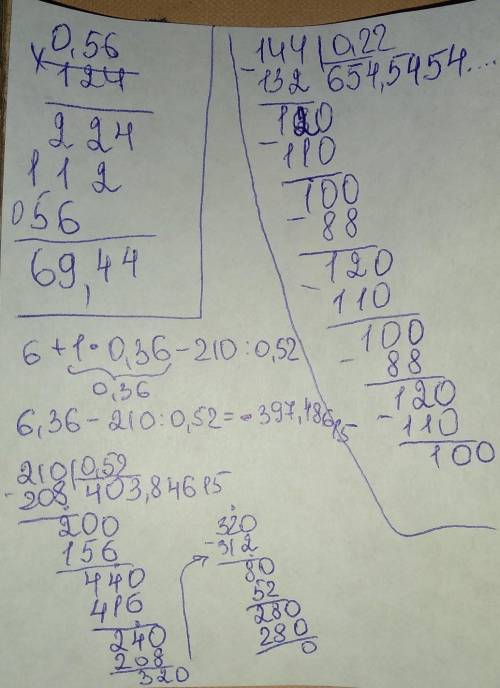 0,56
× 124
224
112
056
69,44
144 | 0,22
-132 654,5454....
120
-110
100
-88
120
-110
100
-88
120
-110
100
6 + 1 · 0,36 - 210 : 0,52
0,36
6,36 - 210 : 0,52 = -397,48615
210 | 0,52
-208 403,84615
200
156
440
416
240
208
320
320
-312
80
52
280
280
0